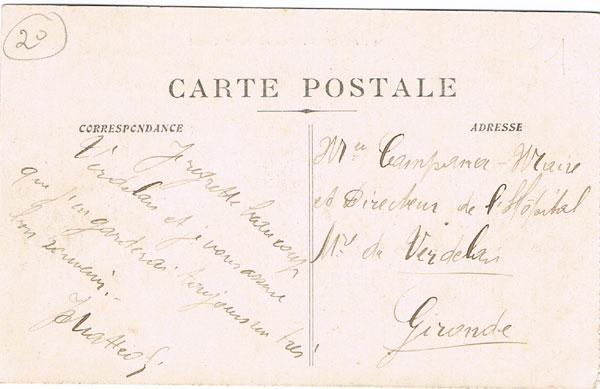 20
CARTE POSTALE
CORRESPONDANCE
Je regrette beaucoup
Verdelais et je vous assure
que j'en garderai toujours un très
bon souvenir.
ADRESSE
Mr Campana Maire
et Directeur de l'Hôpital
de Verdelais
Gironde